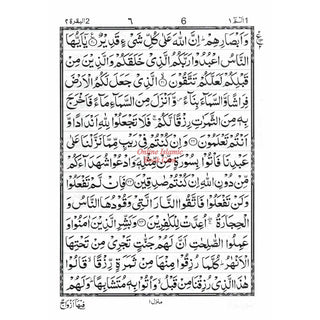 البقرة ٢ 6 ٦ الٓمّٓ ١
وَاَبْصَارِهِمْ ؕ اِنَّ اللّٰهَ عَلٰى كُلِّ شَىْءٍ قَدِيْرٌ ۟ يٰۤاَيُّهَا
النَّاسُ اعْبُدُوْا رَبَّكُمُ الَّذِىْ خَلَقَكُمْ وَالَّذِيْنَ مِنْ
قَبْلِكُمْ لَعَلَّكُمْ تَتَّقُوْنَ ۟ الَّذِىْ جَعَلَ لَكُمُ الْاَرْضَ
فِرَاشًا وَّالسَّمَآءَ بِنَآءً ۪ وَّاَنْزَلَ مِنَ السَّمَآءِ مَآءً فَاَخْرَجَ
بِهٖ مِنَ الثَّمَرٰتِ رِزْقًا لَّكُمْ ۚ فَلَا تَجْعَلُوْا لِلّٰهِ اَنْدَادًا وَّ
اَنْتُمْ تَعْلَمُوْنَ ۟ وَاِنْ كُنْتُمْ فِىْ رَيْبٍ مِّمَّا نَزَّلْنَا عَلٰى
عَبْدِنَا فَاْتُوْا بِسُوْرَةٍ مِّنْ مِّثْلِهٖ ۪ وَادْعُوْا شُهَدَآءَكُمْ
مِّنْ دُوْنِ اللّٰهِ اِنْ كُنْتُمْ صٰدِقِيْنَ ۟ فَاِنْ لَّمْ تَفْعَلُوْا
وَلَنْ تَفْعَلُوْا فَاتَّقُوا النَّارَ الَّتِىْ وَقُوْدُهَا النَّاسُ وَ
الْحِجَارَةُ ۖۚ اُعِدَّتْ لِلْكٰفِرِيْنَ ۟ وَبَشِّرِ الَّذِيْنَ اٰمَنُوْا وَ
عَمِلُوا الصّٰلِحٰتِ اَنَّ لَهُمْ جَنّٰتٍ تَجْرِىْ مِنْ تَحْتِهَا
الْاَنْهٰرُ ؕ كُلَّمَا رُزِقُوْا مِنْهَا مِنْ ثَمَرَةٍ رِّزْقًا ۙ قَالُوْا
هٰذَا الَّذِىْ رُزِقْنَا مِنْ قَبْلُ ۙ وَاُتُوْا بِهٖ مُتَشَابِهًا ؕ وَلَهُمْ
منزل ١ فِيْهَاۤ اَزْوَاجٌ